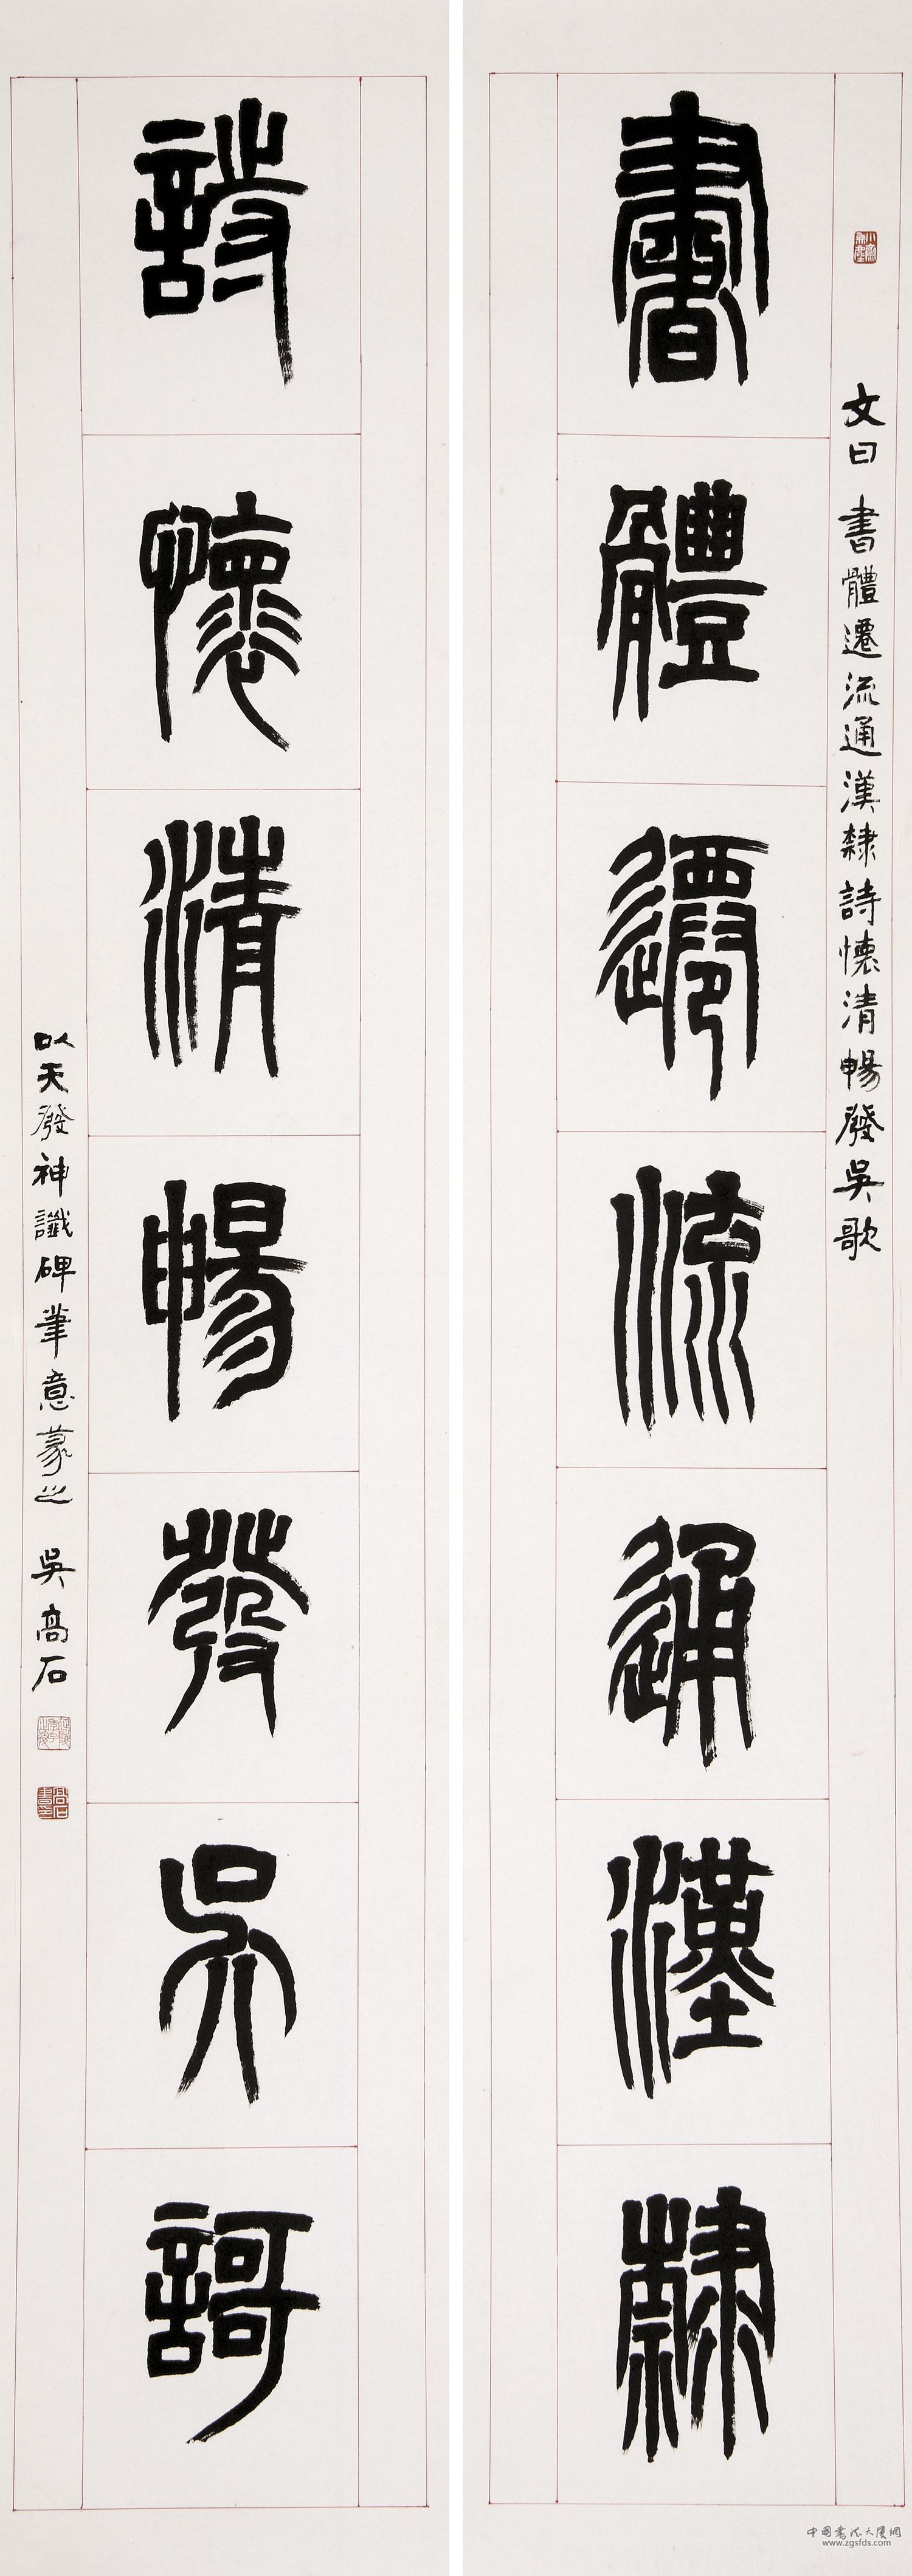 書體遷流通漢隸
文曰 書體遷流通漢隸詩懷清暢發吳歌
詩懷清暢發吳謌
以天發神讖碑筆意篆之 吳高石
中国书法大厦網
www.zgsfds.com